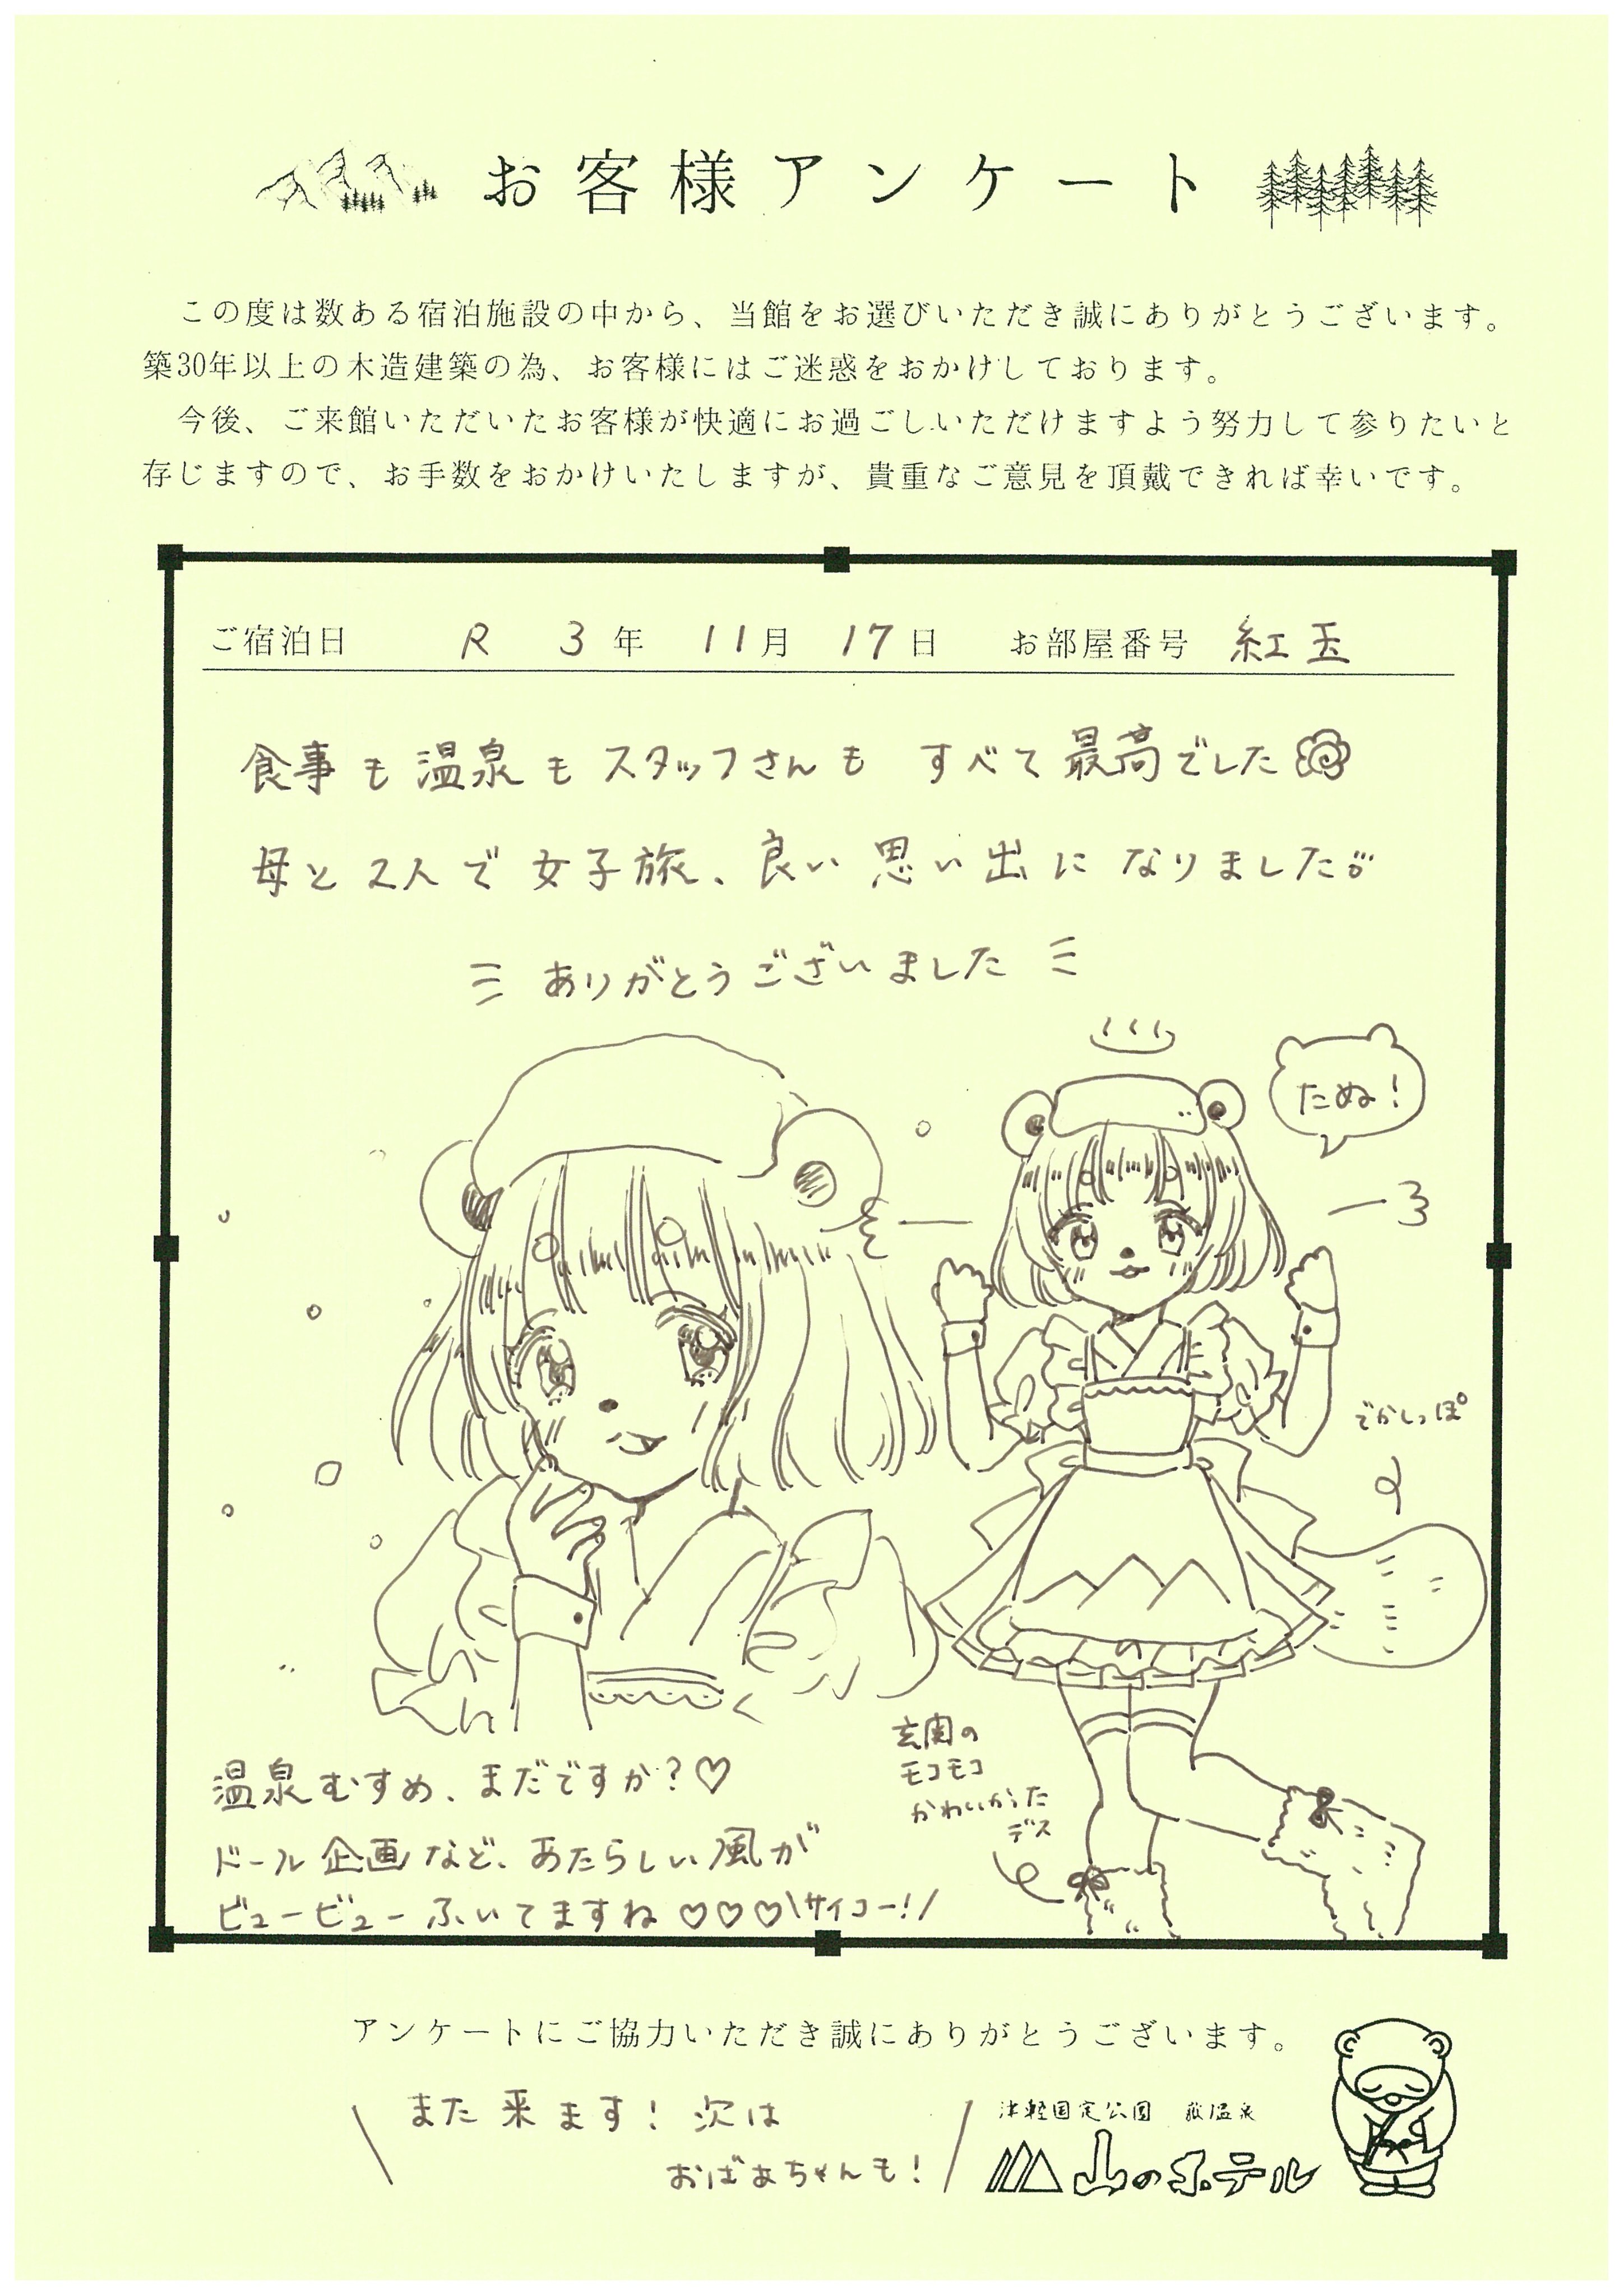 お客様アンケート
この度は数ある宿泊施設の中から、当館をお選びいただき誠にありがとうございます。
築30年以上の木造建築の為、お客様にはご迷惑をおかけしております。
今後、ご来館いただいたお客様が快適にお過ごしいただけますよう努力して参りたいと
存じますので、お手数をおかけいたしますが、貴重なご意見を頂戴できれば幸いです。
ご宿泊日 R 3年 11月 17日 お部屋番号 紅玉
食事も温泉もスタッフさんも すべて最高でした
母と2人で女子旅、良い思い出になりました
ありがとうございました
たぬ!
でかしっぽ
玄関の
モコモコ
かわいかった
デス
温泉むすめ、まだですか?♡
ドール企画など、あたらしい風が
ビュービューふいてますね♡♡♡\サイコー!/
アンケートにご協力いただき誠にありがとうございます。
\ また来ます! 次は
おばあちゃんも! /
津軽国定公園 嶽温泉
山のホテル